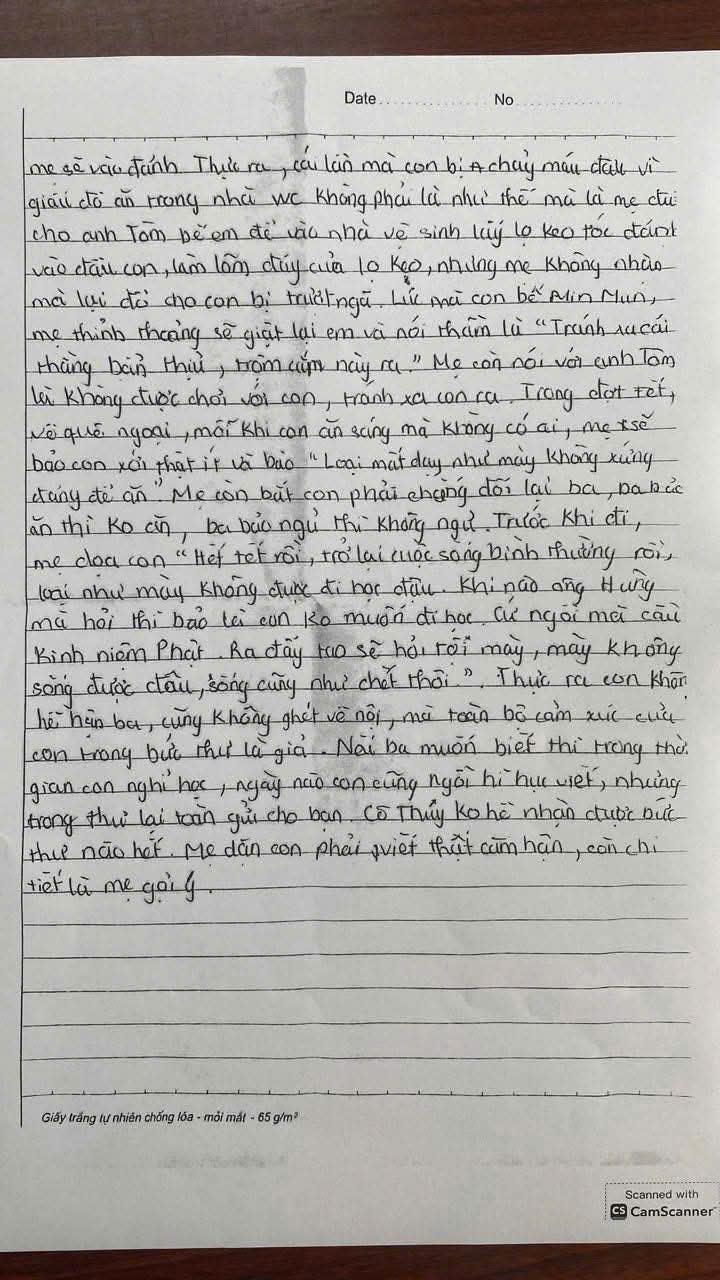 Date No
mẹ sẽ vào đánh. Thực ra, cái lần mà con bị chảy máu đầu vì
giấu đồ ăn trong nhà WC không phải là như thế mà là mẹ đưa
cho anh Tôm bế em để vào nhà vệ sinh lấy lọ keo tóc đánh
vào đầu con, làm lõm đáy của lọ keo, nhưng mẹ không nhận
mà lại đổ cho con bị trượt ngã. Lúc mà con bế Min Mun,
mẹ thỉnh thoảng sẽ giật lại em và nói thầm là "Tránh xa cái
thằng bẩn thỉu, trộm cắp này ra." Mẹ còn nói với anh Tôm
là không được chơi với con, tránh xa con ra. Trong đợt tết,
về quê ngoại, mỗi khi con ăn sáng mà không có ai, mẹ sẽ
bảo con xới thật ít và bảo "Loại mất dạy như mày không xứng
đáng để ăn". Mẹ còn bắt con phải chống đối lại ba, ba bảo
ăn thì ko ăn, ba bảo ngủ thì không ngủ. Trước khi đi,
mẹ dọa con "Hết tết rồi, trở lại cuộc sống bình thường rồi,
loại như mày không được đi học đâu. Khi nào ông Hưng
mà hỏi thì bảo là con ko muốn đi học. Cứ ngồi mà cầu
kinh niệm Phật. Ra đấy tao sẽ hỏi tội mày, mày không
sống được đâu, sống cũng như chết thôi". Thực ra con không
hề hận ba, cũng không ghét về nội, mà toàn bộ cảm xúc của
con trong bức thư là giả. Nói ba muốn biết thì trong thời
gian con nghỉ học, ngày nào con cũng ngồi hì hục viết, nhưng
trong thư lại toàn gửi cho bạn. Cô Thủy ko hề nhận được bức
thư nào hết. Mẹ dặn con phải viết thật căm hận, còn chi
tiết là mẹ gợi ý.
Giấy trắng tự nhiên chống lóa - mỏi mắt - 65 g/m²
Scanned with
CS CamScanner